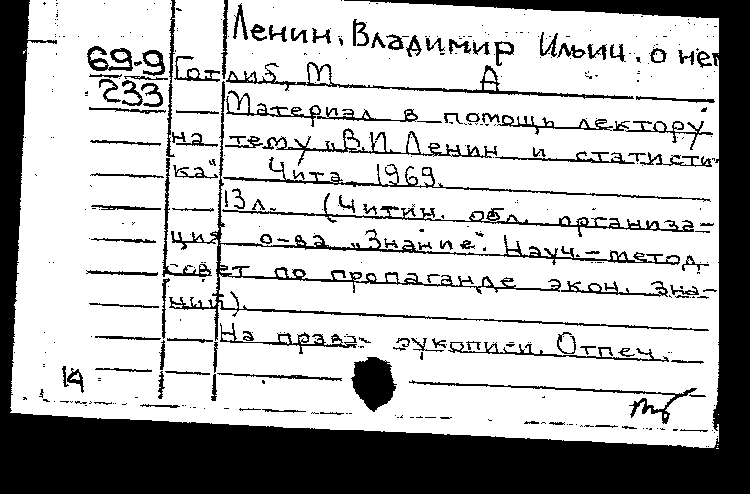 Ленин, Владимир Ильич. о нем
69-9
233
Готлиб, М А
Материал в помощь лектору
на тему „В.И. Ленин и статисти-
ка" Чита, 1969.
13 л. (Читин. обл. организа-
ция о-ва „Знание". Науч.-метод.
совет по пропаганде экон. зна-
ний).
На правах рукописи. Отпеч.
14